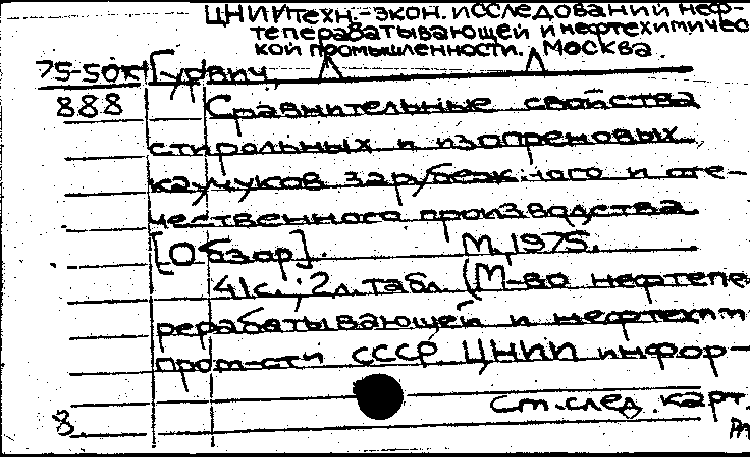 ЦНИИ техн.-экон. исследований неф-
теперабатывающей и нефтехимичес
кой промышленности. Москва.
75-50к Гурвич, Л А
888 Сравнительные свойства
стирольных и изопреновых
каучуков зарубежного и оте-
чественного производства
[Обзор]. М., 1975.
41с.; 2л.табл. (М-во нефтепе-
рерабатывающей и нефтехим
пром-сти СССР. ЦНИИ инфор-
См. след. карт.
8.